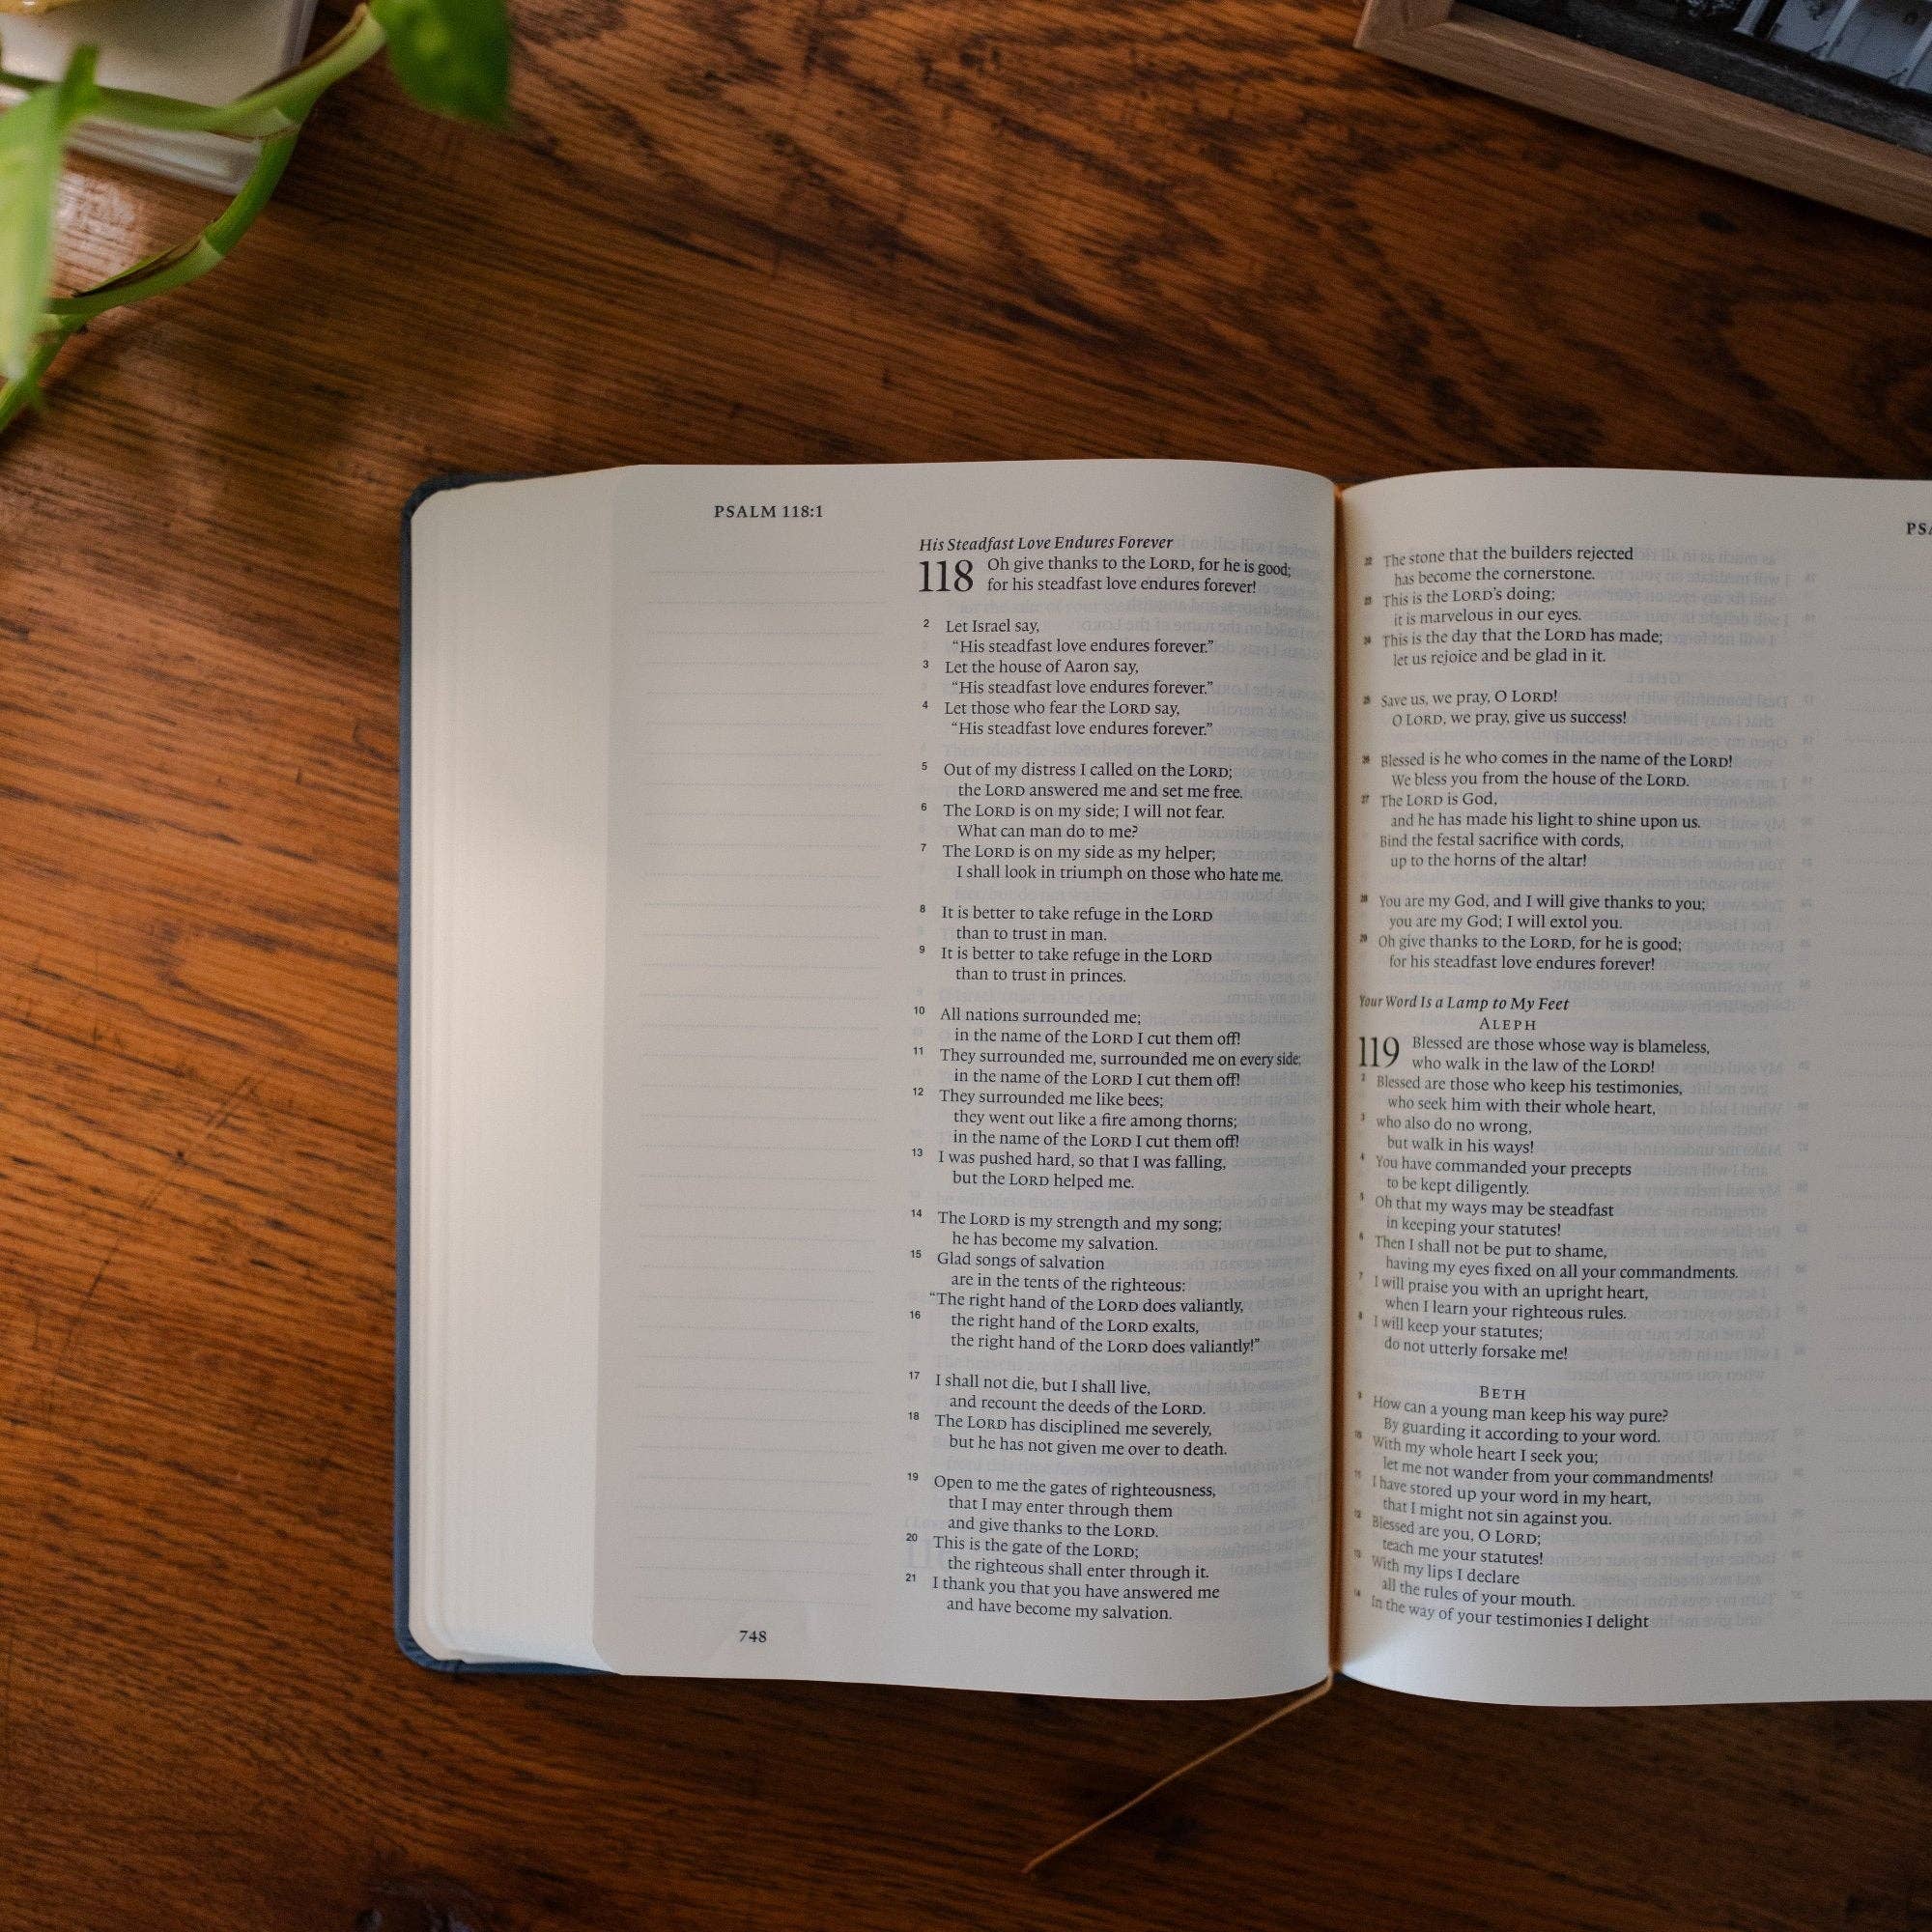 PSALM 118:1
His Steadfast Love Endures Forever
118 Oh give thanks to the LORD, for he is good;
for his steadfast love endures forever!
2 Let Israel say,
“His steadfast love endures forever.”
3 Let the house of Aaron say,
“His steadfast love endures forever.”
4 Let those who fear the LORD say,
“His steadfast love endures forever.”
5 Out of my distress I called on the LORD;
the LORD answered me and set me free.
6 The LORD is on my side; I will not fear.
What can man do to me?
7 The LORD is on my side as my helper;
I shall look in triumph on those who hate me.
8 It is better to take refuge in the LORD
than to trust in man.
9 It is better to take refuge in the LORD
than to trust in princes.
10 All nations surrounded me;
in the name of the LORD I cut them off!
11 They surrounded me, surrounded me on every side;
in the name of the LORD I cut them off!
12 They surrounded me like bees;
they went out like a fire among thorns;
in the name of the LORD I cut them off!
13 I was pushed hard, so that I was falling,
but the LORD helped me.
14 The LORD is my strength and my song;
he has become my salvation.
15 Glad songs of salvation
are in the tents of the righteous:
“The right hand of the LORD does valiantly,
16 the right hand of the LORD exalts,
the right hand of the LORD does valiantly!”
17 I shall not die, but I shall live,
and recount the deeds of the LORD.
18 The LORD has disciplined me severely,
but he has not given me over to death.
19 Open to me the gates of righteousness,
that I may enter through them
and give thanks to the LORD.
20 This is the gate of the LORD;
the righteous shall enter through it.
21 I thank you that you have answered me
and have become my salvation.
748
22 The stone that the builders rejected
has become the cornerstone.
23 This is the LORD’s doing;
it is marvelous in our eyes.
24 This is the day that the LORD has made;
let us rejoice and be glad in it.
25 Save us, we pray, O LORD!
O LORD, we pray, give us success!
26 Blessed is he who comes in the name of the LORD!
We bless you from the house of the LORD.
27 The LORD is God,
and he has made his light to shine upon us.
Bind the festal sacrifice with cords,
up to the horns of the altar!
28 You are my God, and I will give thanks to you;
you are my God; I will extol you.
29 Oh give thanks to the LORD, for he is good;
for his steadfast love endures forever!
Your Word Is a Lamp to My Feet
ALEPH
119 Blessed are those whose way is blameless,
who walk in the law of the LORD!
2 Blessed are those who keep his testimonies,
who seek him with their whole heart,
3 who also do no wrong,
but walk in his ways!
4 You have commanded your precepts
to be kept diligently.
5 Oh that my ways may be steadfast
in keeping your statutes!
6 Then I shall not be put to shame,
having my eyes fixed on all your commandments.
7 I will praise you with an upright heart,
when I learn your righteous rules.
8 I will keep your statutes;
do not utterly forsake me!
BETH
9 How can a young man keep his way pure?
By guarding it according to your word.
10 With my whole heart I seek you;
let me not wander from your commandments!
11 I have stored up your word in my heart,
that I might not sin against you.
12 Blessed are you, O LORD;
teach me your statutes!
13 With my lips I declare
all the rules of your mouth.
14 In the way of your testimonies I delight